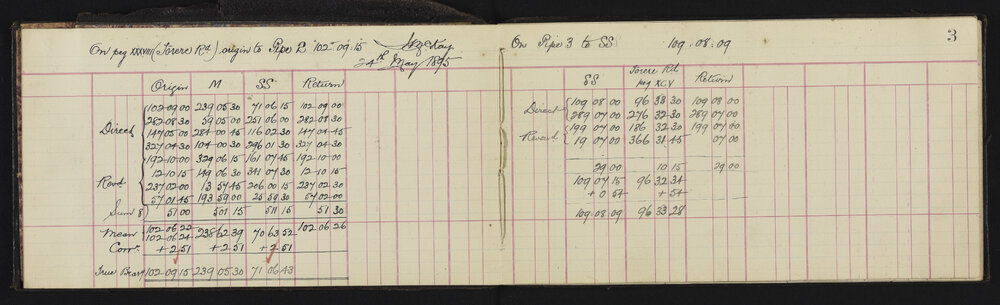 On peg XXXVIII (Torere Rd) origin to Pipe 2 102-09-15
24th May 1895
Origin M SS Return
102-09-00 239 05 30 71 06 15 102-09 00
282-08-30 59 05 00 251 06 00 282-08 30
Direct 147 05 00 284 00 45 116 02 30 147 04 45
327 04 30 104 00 30 296 01 30 327 04 30
192-10-00 329 06 15 161 07 45 192-10 00
12-10 15 149 06 30 341 07 30 12-10 15
Revd. 237 02 00 13 57 45 206 00 15 237 02 30
57 01 45 193 59 00 25 59 30 57 02 00
Sum 8 51 00 501 15 511 15 51 30
102-06-22
Mean 102-06-24 238 62 39 70 63 52 102 06 26
Corrn. +2.51 +2.51 +2.51
True Bearg 102-09 15 239 05 30 71 06 43
On Pipe 3 to SS 109-08-09
3
SS Torere Rd peg XCV Return
Direct 109 08 00 96 33 30 109 08 00
289 07 00 276 32-30 289 07 00
Reversd 199 07 00 186 32-30 199 07 00
19 07 00 366 31 45 07 00
29 00 10 15 29 00
109 07 15 96 32 34
+ 0 54 + 54
109-08-09 96 33 28